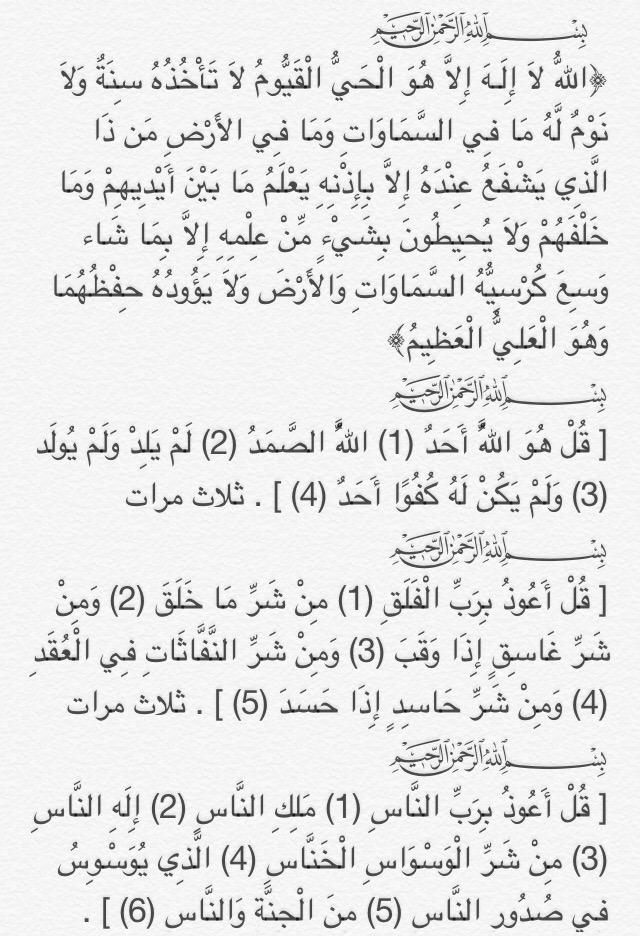 بِسْمِ اللَّهِ الرَّحْمَٰنِ الرَّحِيمِ
﴿اللهُ لاَ إِلَـهَ إِلاَّ هُوَ الْحَيُّ الْقَيُّومُ لاَ تَأْخُذُهُ سِنَةٌ وَلاَ
نَوْمٌ لَّهُ مَا فِي السَّمَاوَاتِ وَمَا فِي الأَرْضِ مَن ذَا
الَّذِي يَشْفَعُ عِنْدَهُ إِلاَّ بِإِذْنِهِ يَعْلَمُ مَا بَيْنَ أَيْدِيهِمْ وَمَا
خَلْفَهُمْ وَلاَ يُحِيطُونَ بِشَيْءٍ مِّنْ عِلْمِهِ إِلاَّ بِمَا شَاء
وَسِعَ كُرْسِيُّهُ السَّمَاوَاتِ وَالأَرْضَ وَلاَ يَؤُودُهُ حِفْظُهُمَا
وَهُوَ الْعَلِيُّ الْعَظِيمُ﴾
بِسْمِ اللَّهِ الرَّحْمَٰنِ الرَّحِيمِ
[ قُلْ هُوَ اللهُ أَحَدٌ (1) اللهُ الصَّمَدُ (2) لَمْ يَلِدْ وَلَمْ يُولَد
(3) وَلَمْ يَكُنْ لَهُ كُفُوًا أَحَدٌ (4) ] . ثلاث مرات
بِسْمِ اللَّهِ الرَّحْمَٰنِ الرَّحِيمِ
[ قُلْ أَعُوذُ بِرَبِّ الْفَلَقِ (1) مِنْ شَرِّ مَا خَلَقَ (2) وَمِنْ
شَرِّ غَاسِقٍ إِذَا وَقَبَ (3) وَمِنْ شَرِّ النَّفَّاثَاتِ فِي الْعُقَدِ
(4) وَمِنْ شَرِّ حَاسِدٍ إِذَا حَسَدَ (5) ] . ثلاث مرات
بِسْمِ اللَّهِ الرَّحْمَٰنِ الرَّحِيمِ
[ قُلْ أَعُوذُ بِرَبِّ النَّاسِ (1) مَلِكِ النَّاسِ (2) إِلَهِ النَّاسِ
(3) مِنْ شَرِّ الْوَسْوَاسِ الْخَنَّاسِ (4) الَّذِي يُوَسْوِسُ
فِي صُدُورِ النَّاسِ (5) مِنَ الْجِنَّةِ وَالنَّاسِ (6) ] .